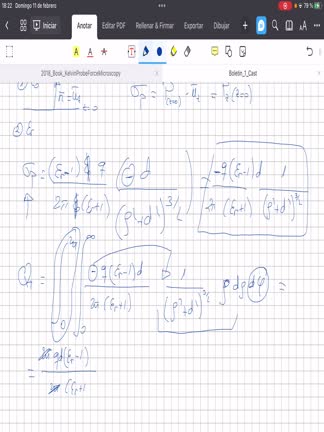 18:22 Domingo 11 de febrero
79 %
Iniciar Anotar Editar PDF Rellenar & Firmar Exportar Dibujar
2018_Book_KelvinProbeForceMicroscopy Boletin_1_Cast
② εr
σp = (εr-1) q / 2π (εr+1) (-d / (ρ²+d²)^3/2) = -q(εr-1)d / 2π (εr+1) 1 / (ρ²+d²)^3/2
= ∫₀^2π ∫₀^∞ -q(εr-1)d / 2π (εr+1) 1 / (ρ²+d²)^3/2 ρ dρ dφ =
= qd(εr-1) / (εr+1